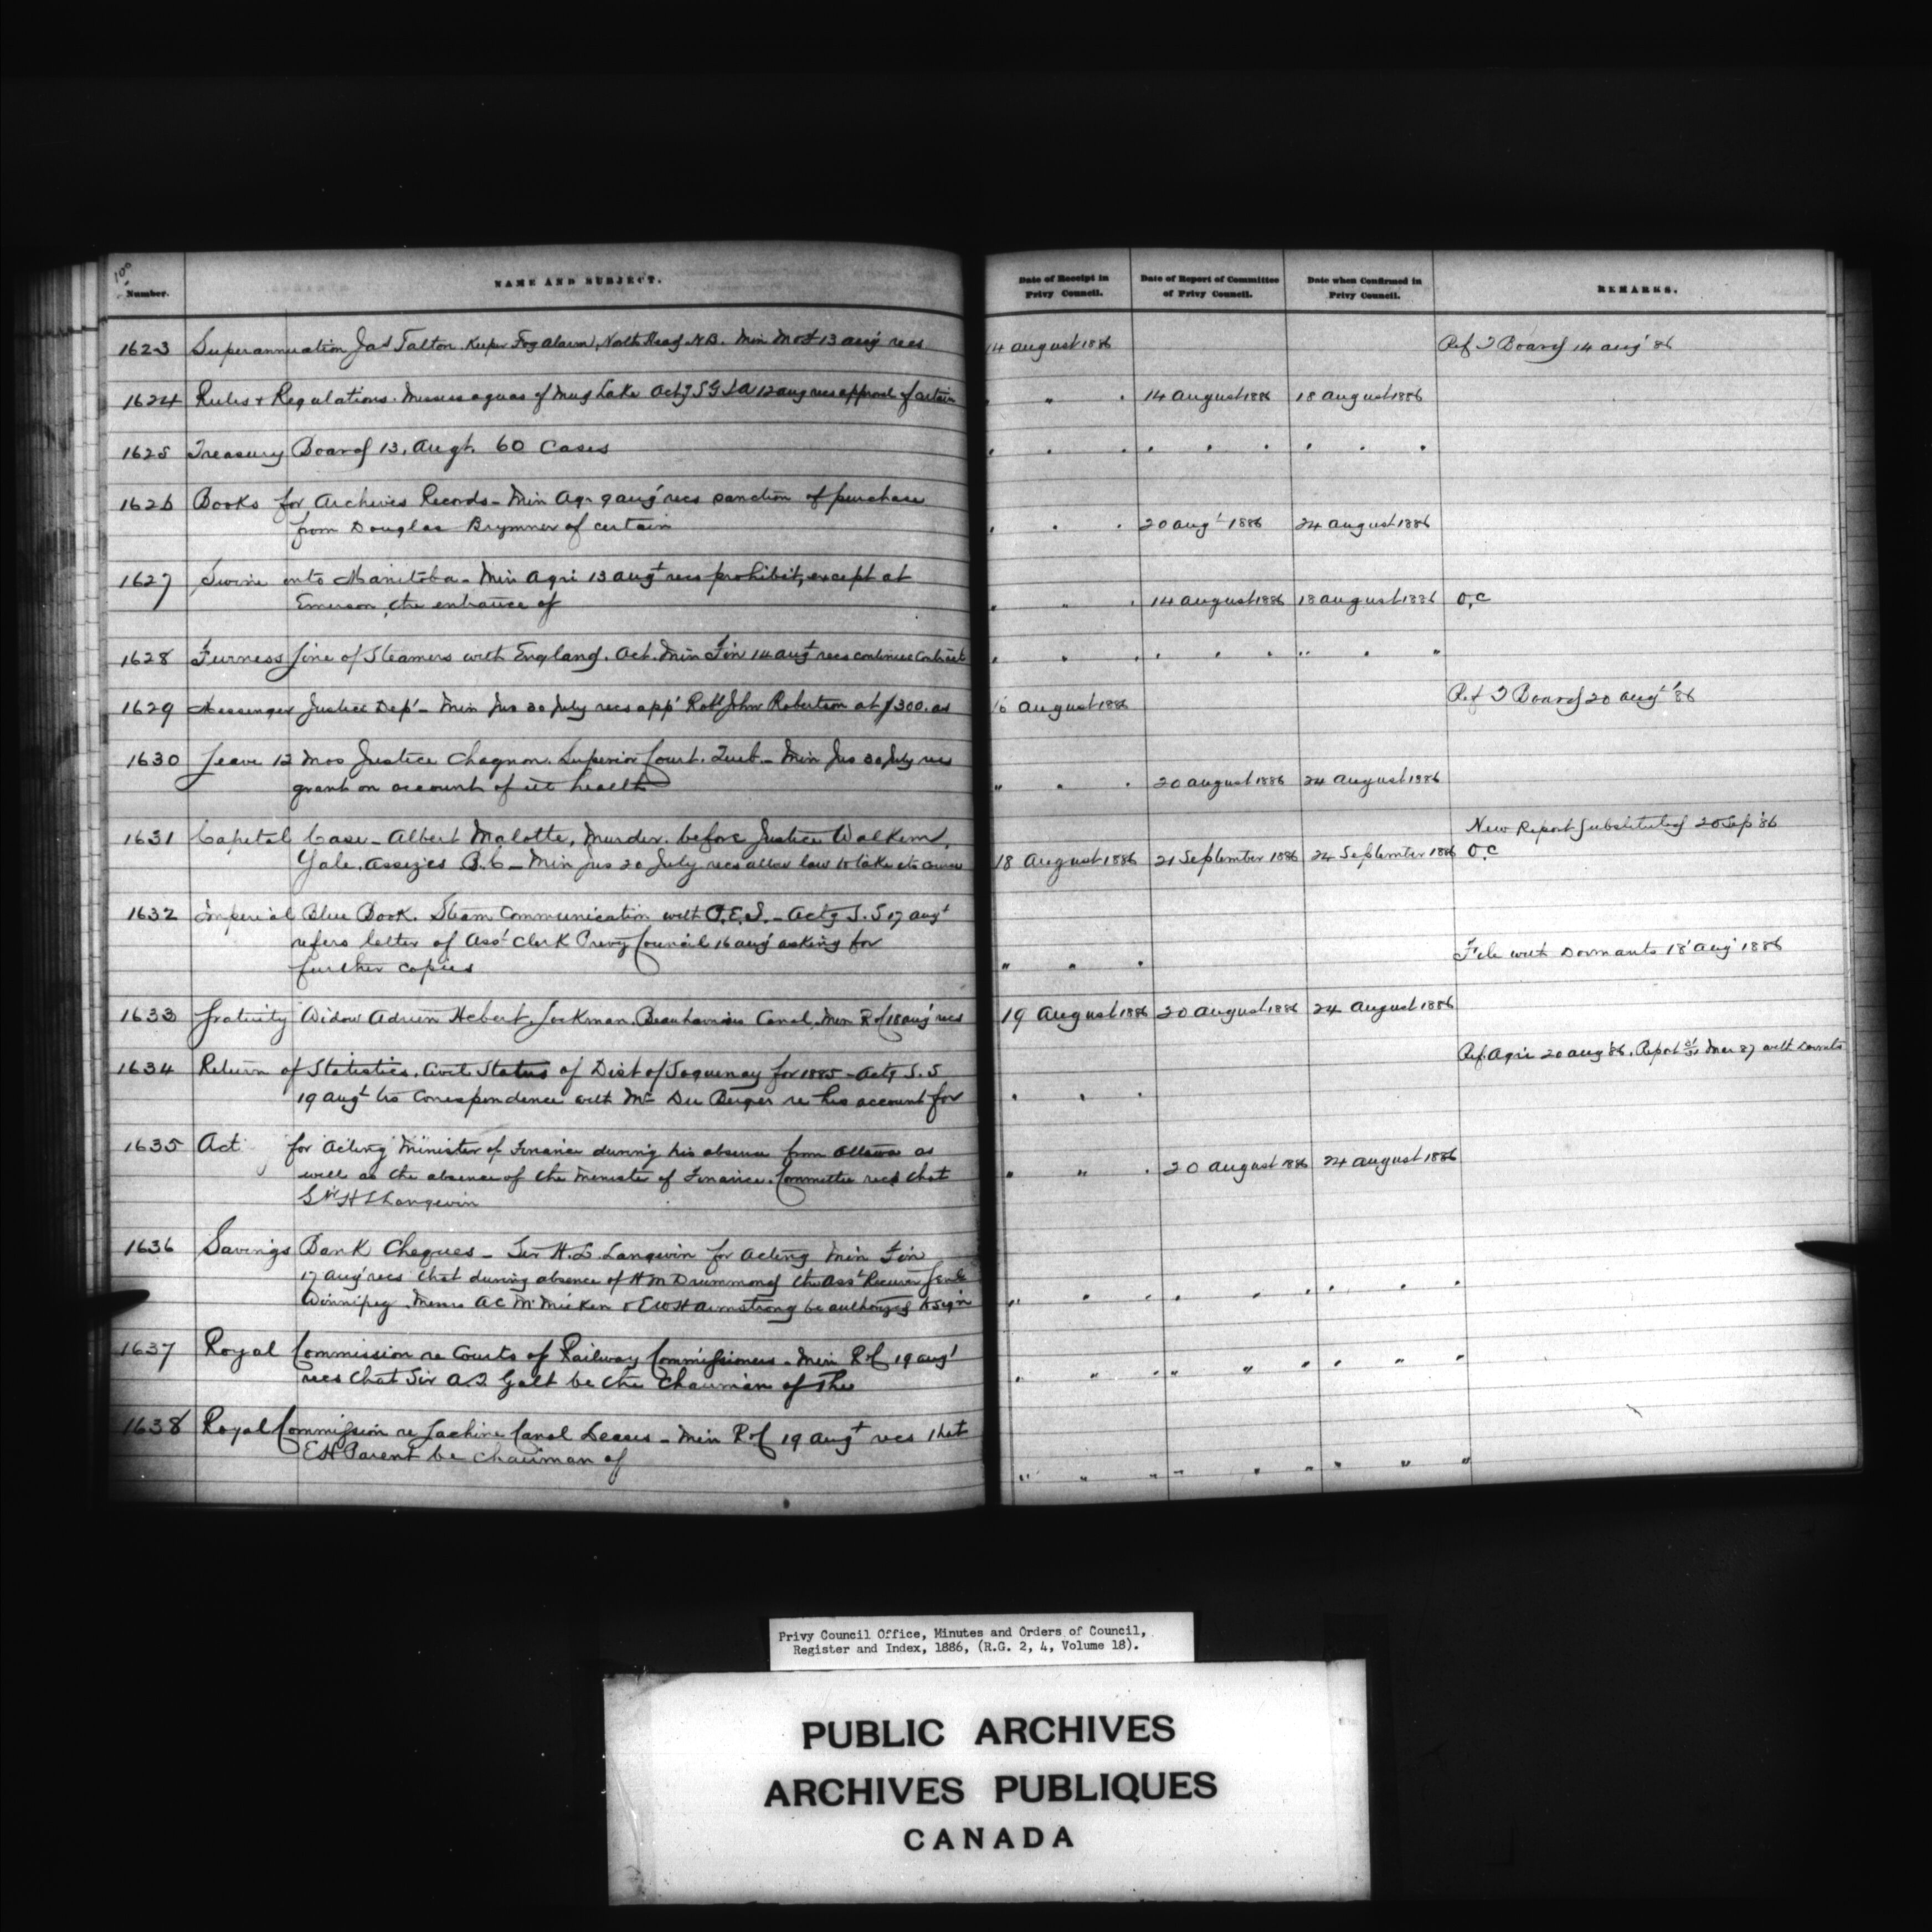 100
Number.
NAME AND SUBJECT.
Date of Receipt in
Privy Council.
Date of Report of Committee
of Privy Council.
Date when Confirmed in
Privy Council.
REMARKS.
1623 Superannuation Jas Talton Keeper Fog Alarm, North Head N.B. Min M & F 13 Aug recs 14 August 1886 Ref T Board 14 Aug' 86
1624 Rules & Regulations. Mississaguas of Mud Lake Actg S G I A 12 Aug recs approval of certain " " " 14 August 1886 18 August 1886
1625 Treasury Board 13, Augt. 60 Cases " " " " " " " " "
1626 Books for Archives Records - Min Agr 9 Aug' recs sanction of purchase
from Douglas Brymner of certain " " " 20 Augt 1886 24 August 1886
1627 Swine into Manitoba - Min Agri 13 Augt recs prohibit, except at
Emerson, the entrance of " " " 14 August 1886 18 August 1886 O.C
1628 Furness Line of Steamers with England. Act. Min Fin 14 Augt recs continue Contract " " " " " " " " "
1629 Messenger Justice Dept - Min Jus 30 July recs app' Robt John Robertson at $300. as 16 August 1886 Ref T Board 20 Augt '86
1630 Leave 12 Mos Justice Chagnon. Superior Court. Queb. - Min Jus 30 July recs
grant on account of ill health " " " 20 August 1886 24 August 1886
1631 Capital Case - Albert Malotte, Murder. before Justice Walkem, New Report Substituted 20 Sep '86
Yale. Assizes B.C - Min Jus 20 July recs allow law to take its course 18 August 1886 21 September 1886 24 September 1886 O.C
1632 Imperial Blue Book. Steam Communication with P.E.I. - Actg S.S 17 Augt
refers letter of Asst Clerk Privy Council 16 Aug' asking for
further copies " " " File with Dormants 18' Aug' 1886
1633 Gratuity Widow Adrien Hebert, Lockman. Beauharnois Canal. Min R of 18 Aug' recs 19 August 1886 20 August 1886 24 August 1886
1634 Return of Statistics. Civil Status of Dist of Saguenay for 1885 - Actg S.S Ref. Agri 20 Aug '86. Report Mar 87 with
19 Augt Correspondence with Mr Du Berger re his account for " " "
1635 Act for "Acting" Minister of Finance during his absence from Ottawa as
well as the absence of the Minister of Finance. Committee recd that " " " 20 August 1886 24 August 1886
Sir H L Langevin
1636 Savings Bank Cheques - Sir H. L. Langevin for Acting Min Fin
17 Aug' recs that during absence of H M Drummond the Asst Receiver Genl
Winnipeg Messrs A C McMicken & E W H Armstrong be authorized to sign " " " " " " " "
1637 Royal Commission re Courts of Railway Commissioners - Min R of 19 Aug'
recs that Sir A. T Galt be the Chairman of the " " " " " " " "
1638 Royal Commission re Lachine Canal Leases - Min R of 19 Augt recs that
E H Parent be chairman of " " " " " " " "
Privy Council Office, Minutes and Orders of Council,
Register and Index, 1886, (R.G. 2, 4, Volume 18).
PUBLIC ARCHIVES
ARCHIVES PUBLIQUES
CANADA